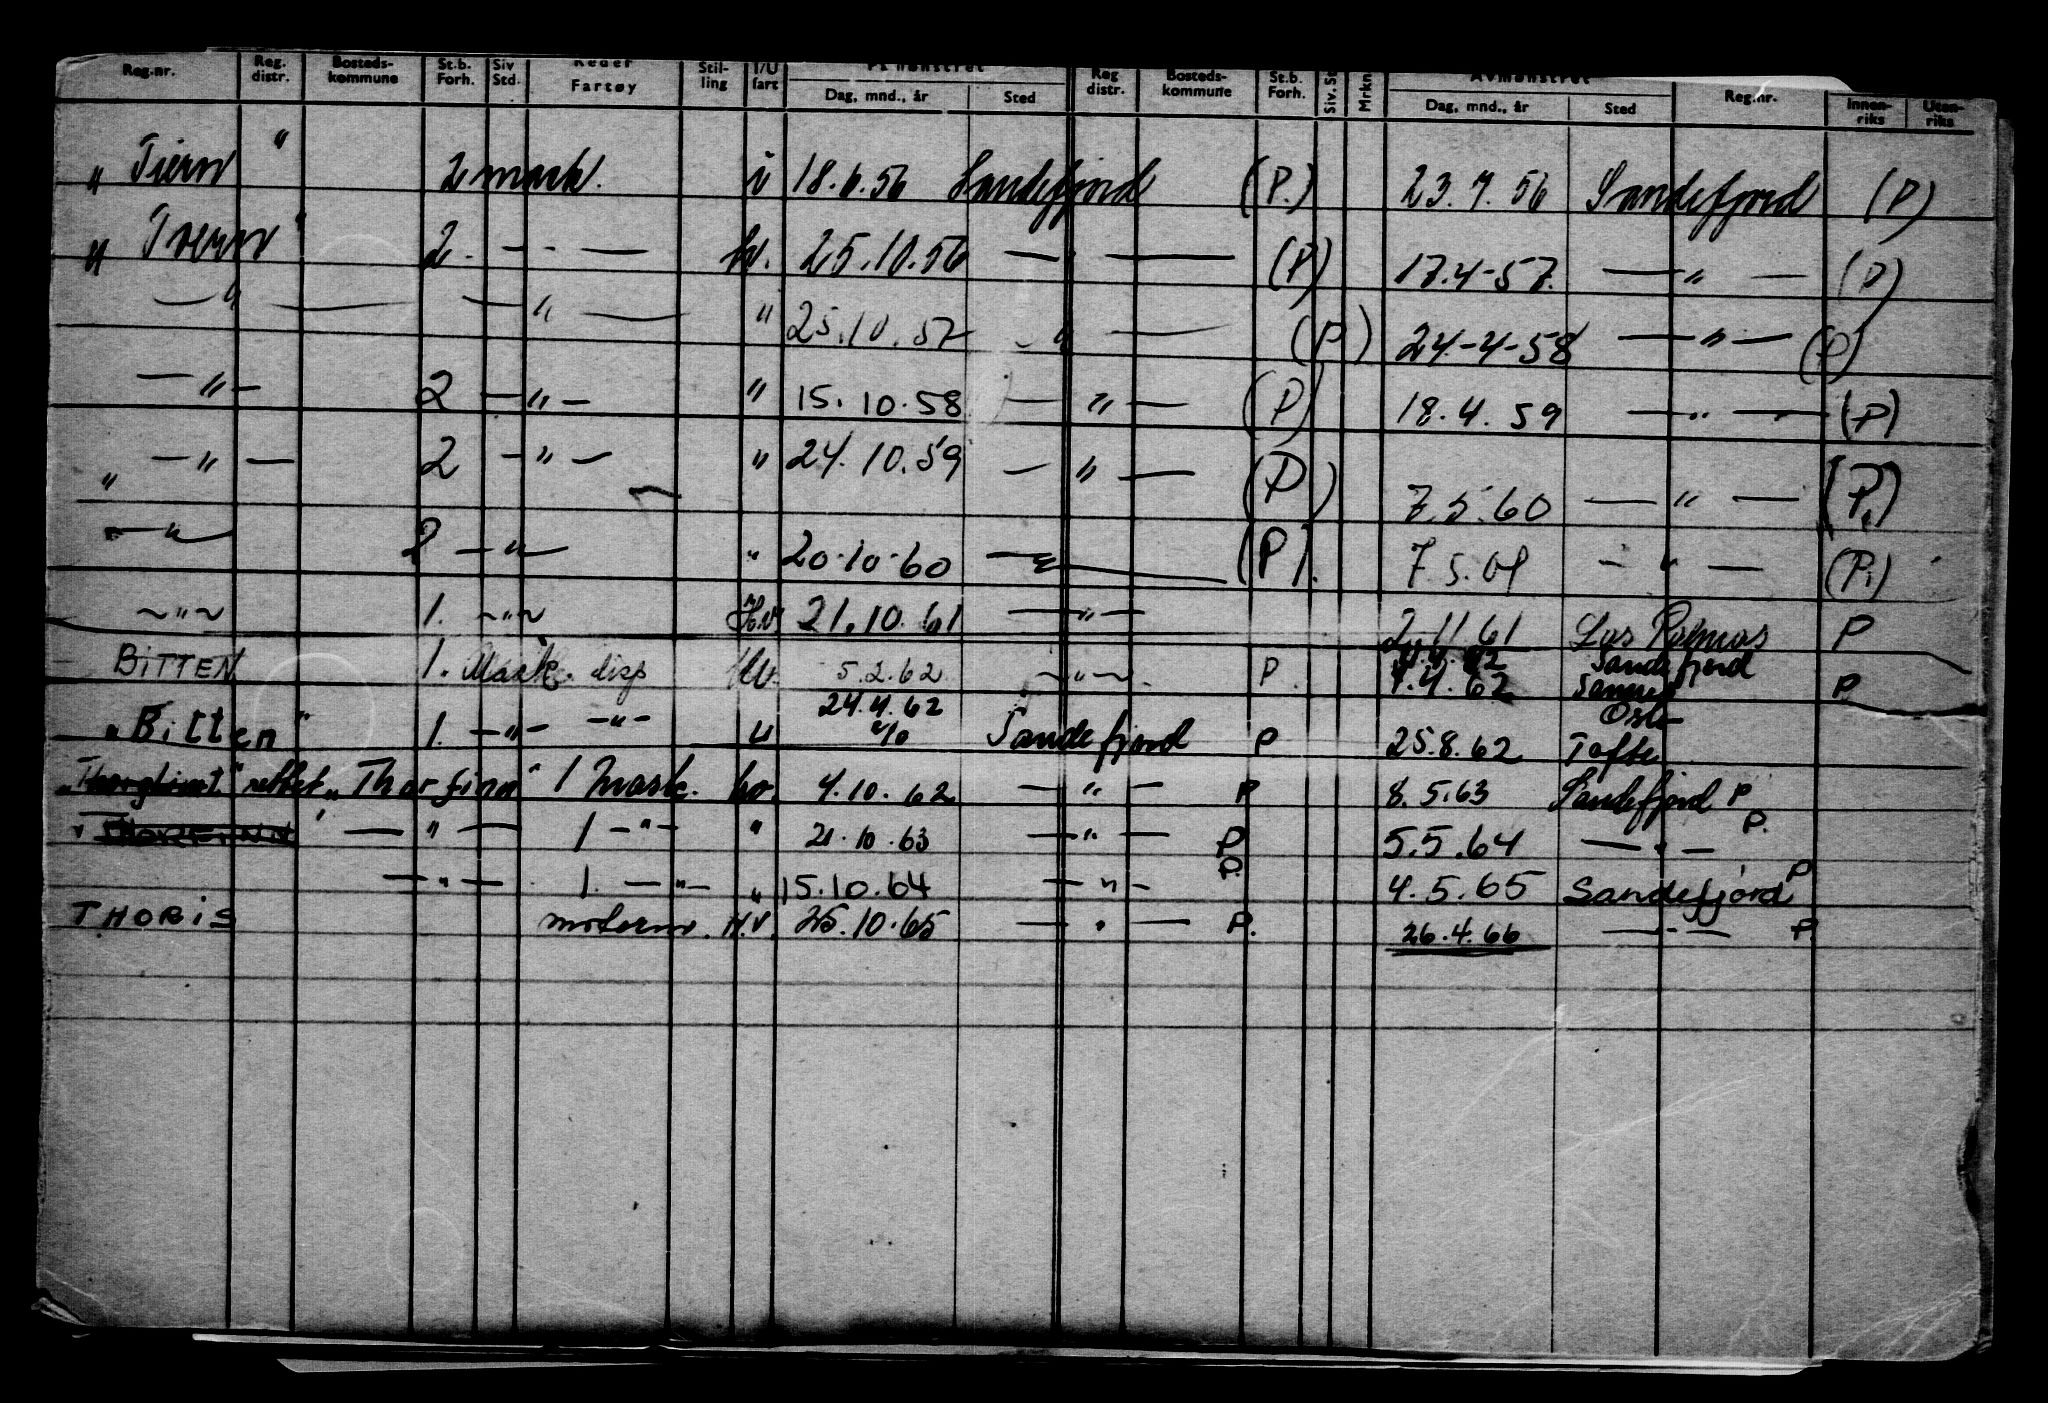 Reg.nr. Reg. distr. Bosteds- kommune St.b. Forh. Siv Std. Reder Fartøy Stil- ling I/U fart Påmønstret Dag, mnd., år Sted Reg distr. Bosteds- kommune St.b. Forh. Siv. St Mrkn Avmønstret Dag, mnd., år Sted Reg.nr. Innen- riks Uten- riks
" " 2 mask. i 18.6.56 Sandefjord (P.) 23.7.56 Sandefjord (P)
" " 2 - - — hv. 25.10.56 — — (P) 17.4-57. — " — (P)
— " — — " — " 25.10.57 — " — (P) 24-4-58 — " — (P)
— " — 2 — " — " 15.10.58 — " — (P) 18.4.59 — " — (P)
" — " — 2 — " — " 24.10.59 — " — (P) 7.5.60 — " — (P.)
— " — 2 — " — " 20-10-60 — " — (P). 7.5.61 — " — (P.)
— " — 1. — " — Hv 21.10.61 — " — 2.11.61 Las Palmas P
BITTEN 1. Mask. disp Hv. 5.2.62 — " — P. 4.4.62 Sandefjord P
24.4.62 Oslo
"Bitten" 1. — " — — " — " Sandefjord P 25.8.62 Tofte
rettet "Thorfinn" 1 mask. hv. 4.10.62 — " — P 8.5.63 Sandefjord P
" THORFINN — " — 1 — " — " 21.10.63 — " — P 5.5.64 — " — P.
— " — 1. — " — " 15.10.64 — " — P. 4.5.65 Sandefjord P
THORIS motorm. H.V. 25.10.65 — " — P. 26.4.66 — " — P.